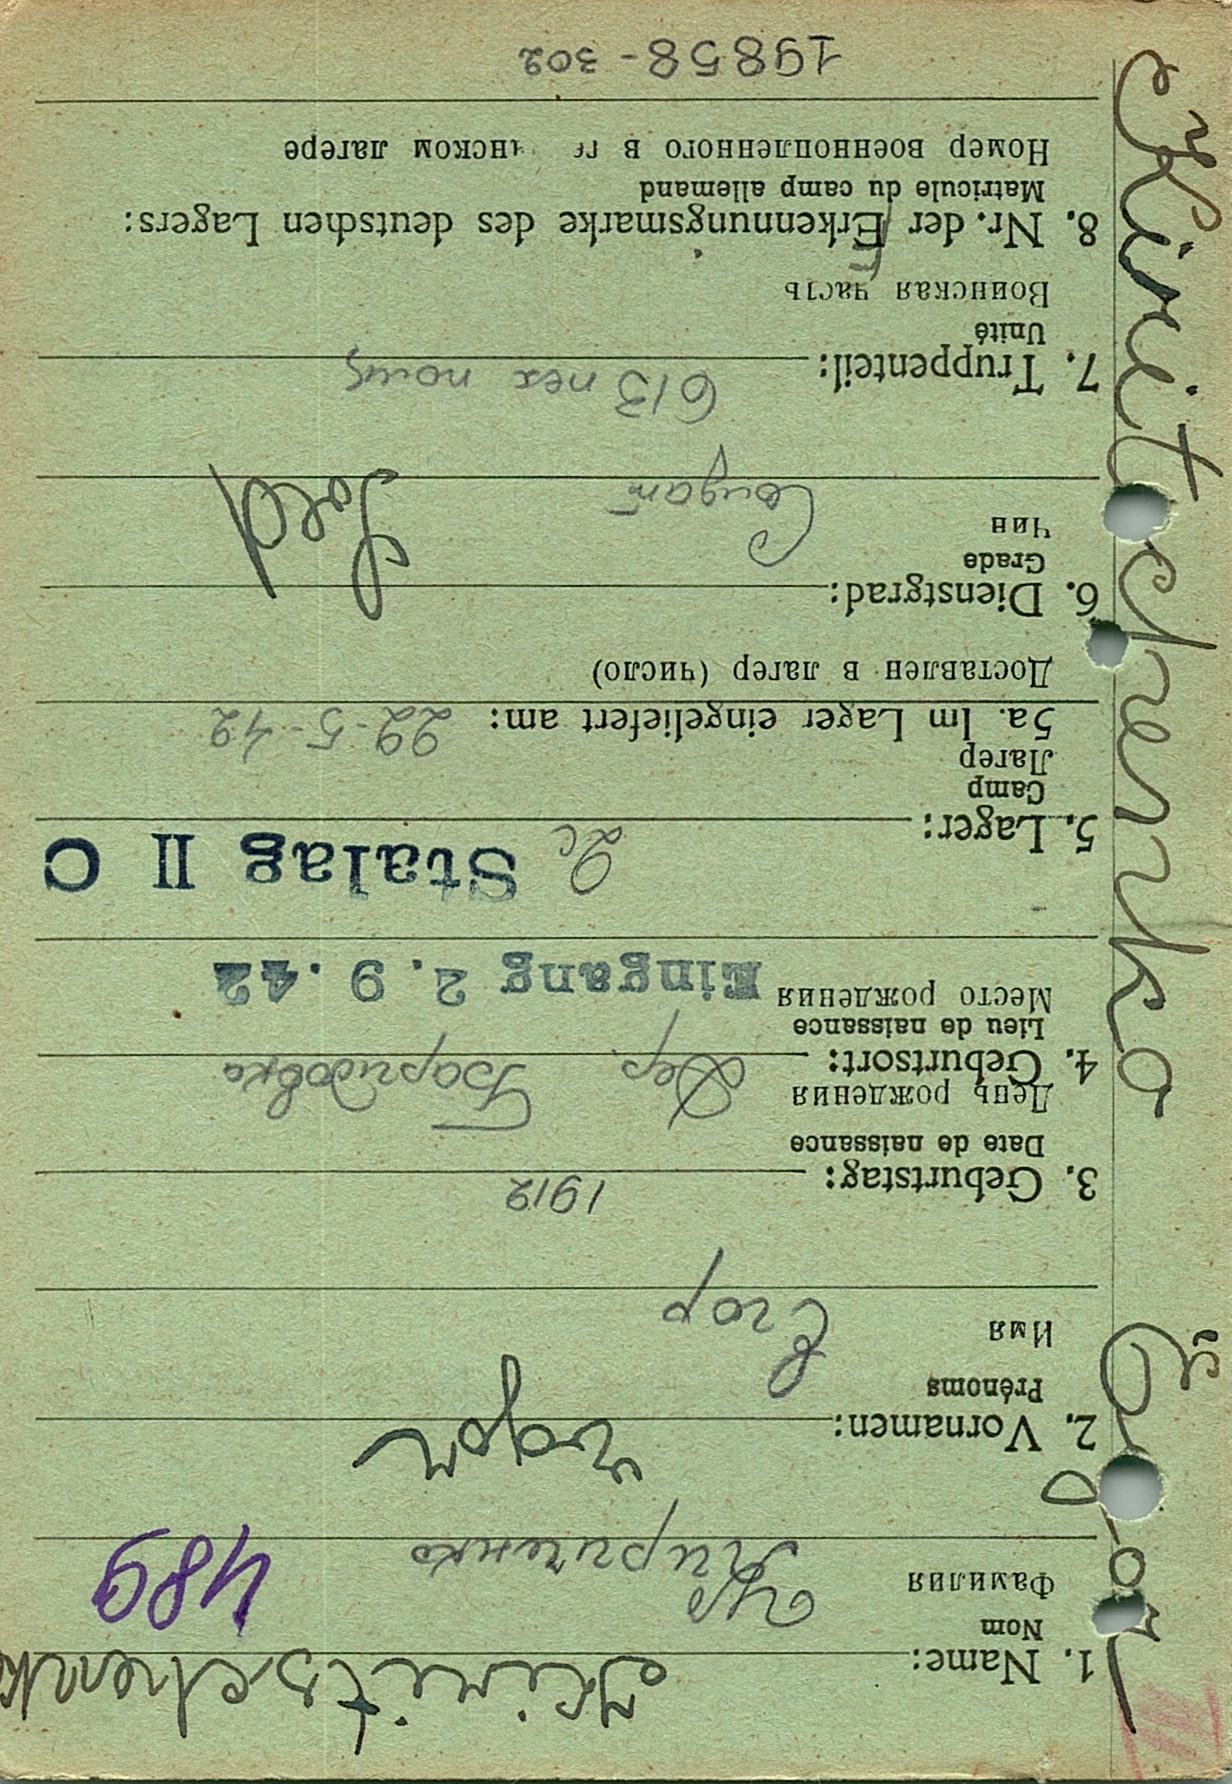 Kiritschenko
489
1. Name:
Nom
Фамилия
Кириченко
Egor
2. Vornamen:
Prénoms
Имя
Егор
3. Geburtstag: 1912
Date de naissance
День рождения
4. Geburtsort: Дер. Баридовка
Lieu de naissance
Место рождения
Eingang 2.9.42
5. Lager: 2c Stalag II C
Camp
Лагер
5a. Im Lager eingeliefert am: 22-5-42
Доставлен в лагер (число)
6. Dienstgrad: Sold
Grade
Чин
Солдат
7. Truppenteil: 613
Unité
Воинская часть
8. Nr. der Erkennungsmarke des deutschen Lagers:
Matricule du camp allemand
Номер военнопленного в нском лагере
19858-302
Kiritschenko Egor